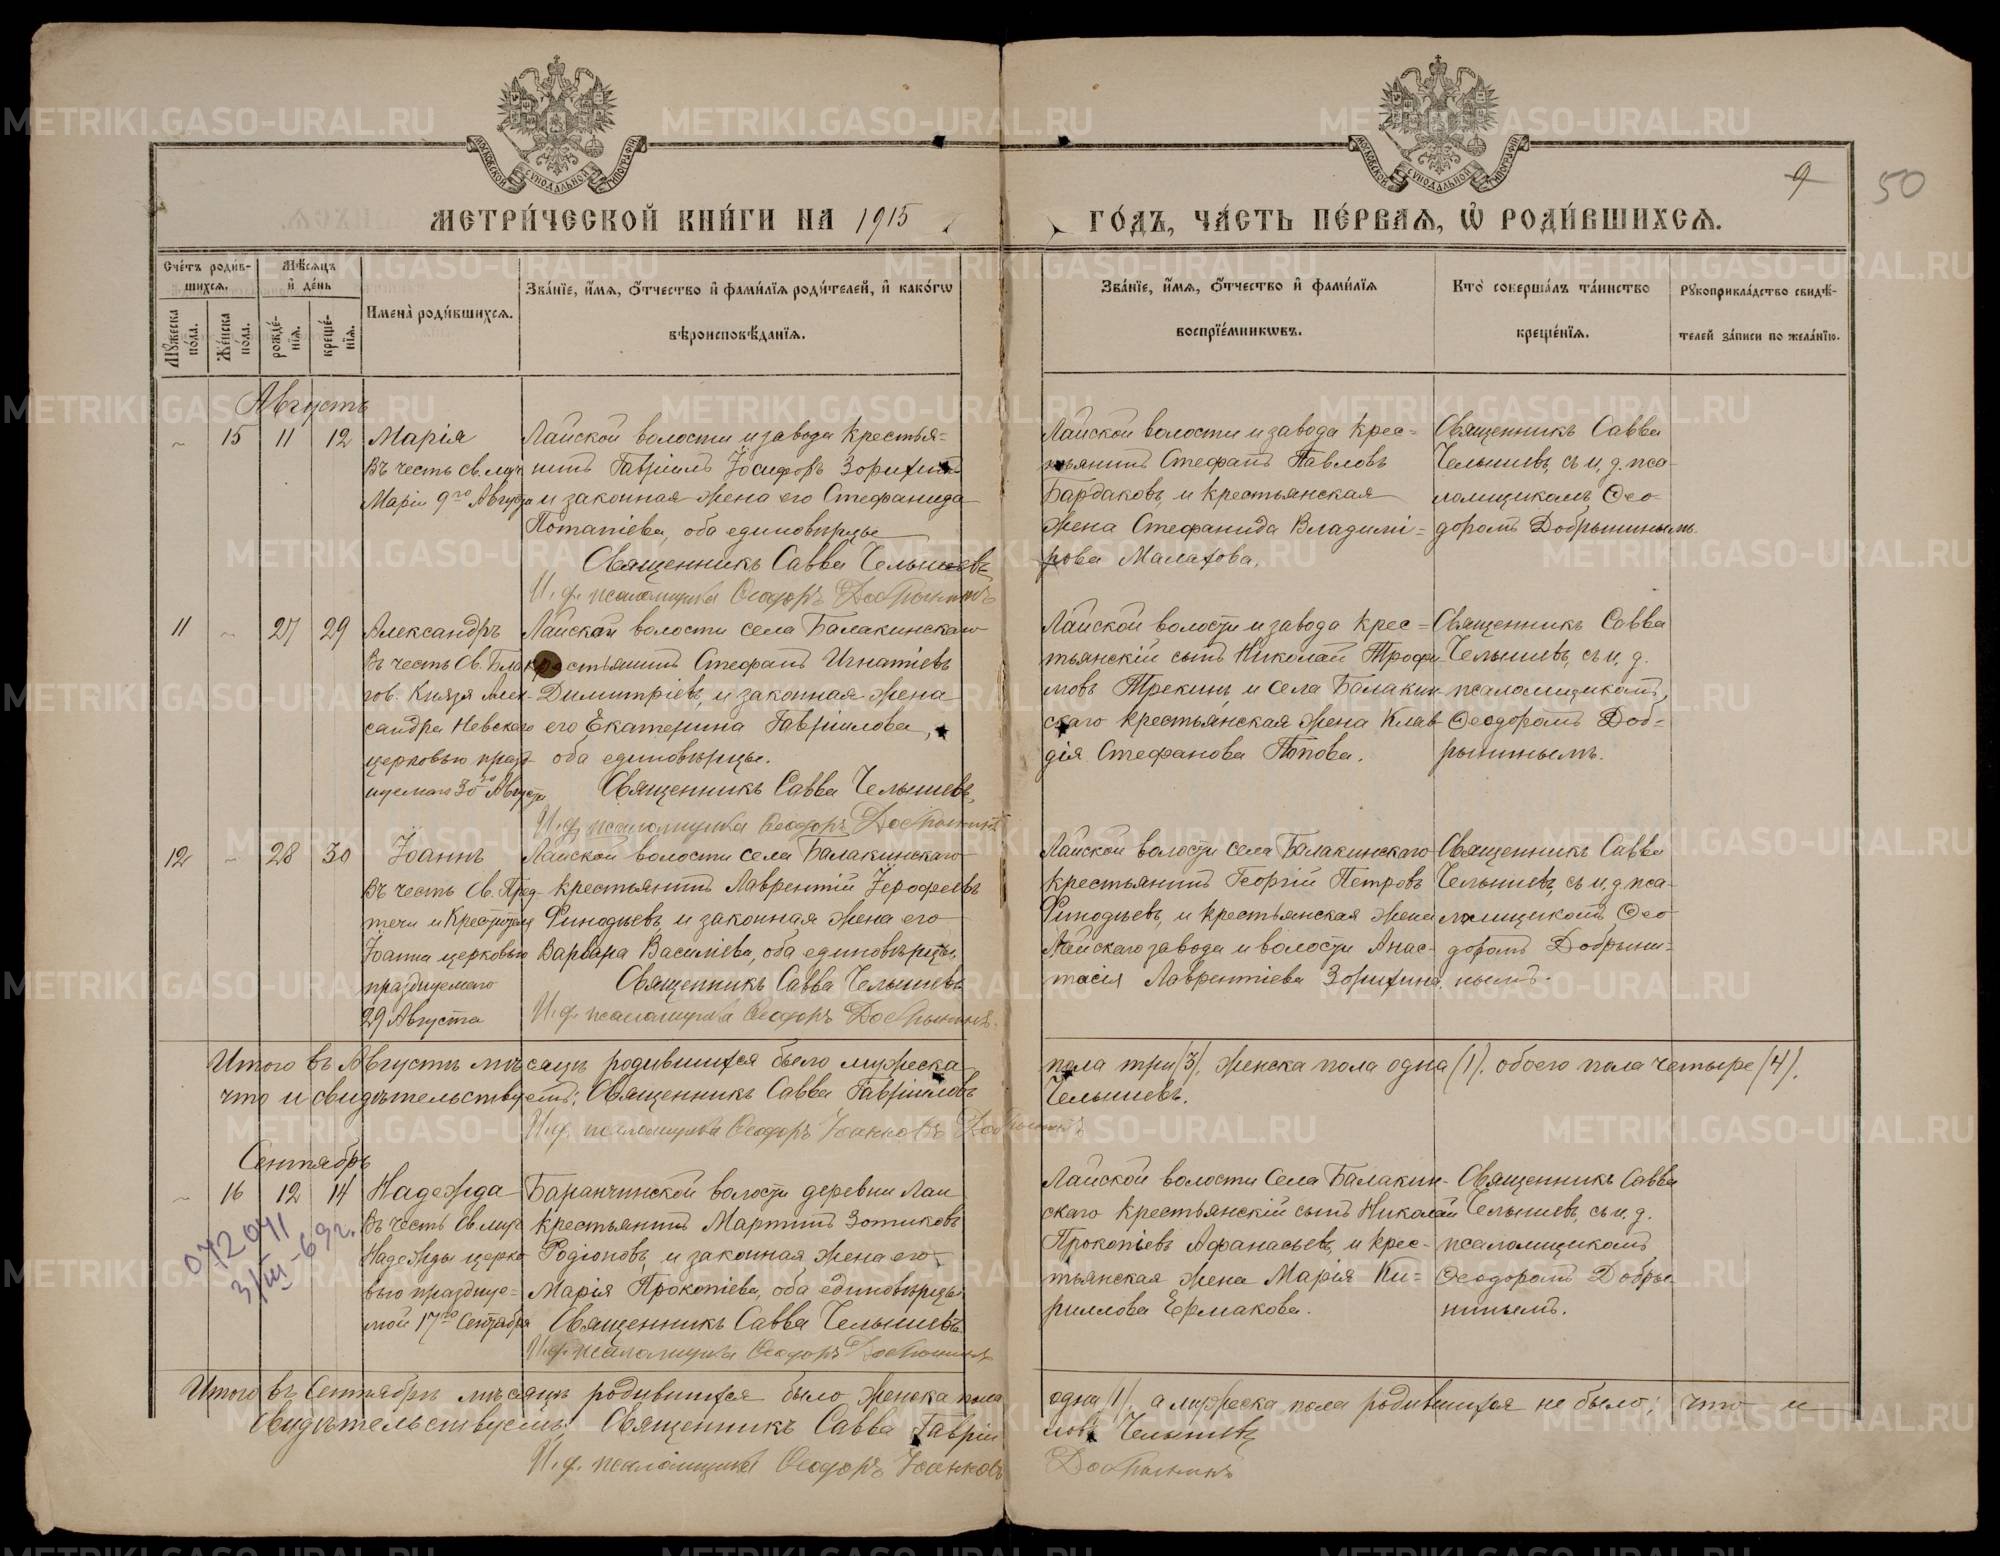 МЕТРИ́ЧЕСКОЙ КНИ́ГИ НА 1915
ГО́ДЪ, ЧА́СТЬ ПЕ́РВАѦ, Ѡ҆ РОДИ́ВШИХСѦ.
9
50
МОСКОВСКОЙ СѴНОДАЛЬНОЙ ТИПОГРАФІИ
МОСКОВСКОЙ СѴНОДАЛЬНОЙ ТИПОГРАФІИ
Сче́тъ роди́в-
шихсѧ.
Мꙋ́жеска по́ла.
Же́нска по́ла.
Мѣ́сѧцъ
и҆ де́нь
рожде́-
нїѧ.
креще́-
нїѧ.
И҆мена̀ роди́вшихсѧ.
Зва́нїе, и҆́мѧ, ѻ҆́тчество и҆ фами́лїѧ роди́телей, и҆ како́гѡ
вѣроисповѣ́данїѧ.
Зва́нїе, и҆́мѧ, ѻ҆́тчество и҆ фами́лїѧ
воспрїе́мникѡвъ.
Кто̀ соверша́лъ та́инство
креще́нїѧ.
Рꙋкоприкла́дство свидѣ́-
телей за́писи по жела́нїю.
Августъ
~ 15 11 12
Марія
Въ честь Св. муч
Маріи 9го Августа
Лайской волости и завода крестья-
нинъ Гавріилъ Іосифовъ Зорихинъ
и законная жена его Стефанида
Потапіева, оба единовѣрцы
Священникъ Савва Челышевъ
И. ф. псаломщика Ѳеодоръ Добрынинъ
Лайской волости и завода крес-
тьянинъ Стефанъ Павловъ
Бардаковъ, и крестьянская
жена Стефанида Владимі-
рова Малахова.
Священникъ Савва
Челышевъ, съ и, д. пса-
ломщикомъ Ѳео-
доромъ Добрынинымъ.
11 ~ 27 29
Александръ
Въ честь Св. Благ
ов. Князя Алек-
сандра Невскаго
церковью празд
нуемаго 30го Августа
Лайской волости села Балакинскаго
крестьянинъ Стефанъ Игнатіевъ
Димитріевъ, и законная жена
его Екатерина Гавріилова,
оба единовѣрцы.
Священникъ Савва Челышевъ,
И. ф. псаломщика Ѳеодоръ Добрынинъ
Лайской волости и завода крес-
тьянскій сынъ Николай Трофи
мовъ Трекинъ, и села Балакин
скаго крестьянская жена Клав
дія Стефанова Попова.
Священникъ Савва
Челышевъ, съ и, д.
псаломщикомъ,
Ѳеодоромъ Доб-
рынинымъ.
12 ~ 28 30
Іоаннъ
Въ честь Св. Пред-
течи и Крестителя
Іоанна церковью
празднуемаго
29 Августа
Лайской волости села Балакинскаго
крестьянинъ Лаврентій Іерофеевъ
Финодѣевъ, и законная жена его
Варвара Василіева, оба единовѣрцы,
Священникъ Савва Челышевъ
И. ф. псаломщика Ѳеодоръ Добрынинъ.
Лайской волости села Балакинскаго
крестьянинъ Георгій Петровъ
Финодѣевъ, и крестьянская жена
Лайскаго завода и волости Анас-
тасія Лаврентіева Зорихина.
Священникъ Савва
Челышевъ, съ и, д. пса-
ломщикомъ Ѳео-
доромъ Добрыни-
нымъ.
Итого въ Августѣ мѣсяцѣ родившихся было мужеска пола три /3/, женска пола одна /1/. обоего пола четыре /4/.
что и свидѣтельствуемъ; Священникъ Савва Гавріиловъ Челышевъ.
И. ф. псаломщика Ѳеодоръ Іоанновъ Добрынинъ
Сентябрь
~ 16 12 14
Надежда
Въ честь Св. муч
Надежды церко
вью праздну-
мой 17го Сентября
072041
3/III-69г.
Баранчинской волости деревни Лаи
крестьянинъ Мартинъ Зотиковъ
Родіоновъ, и законная жена его
Марія Прокопіева, оба единовѣрцы
Священникъ Савва Челышевъ.
И. ф. псаломщика Ѳеодоръ Добрынинъ
Лайской волости Села Балакин-
скаго крестьянскій сынъ Николай
Прокопіевъ Афанасьевъ, и крес-
тьянская жена Марія Ки-
риллова Ермакова.
Священникъ Савва
Челышевъ, съ и, д.
псаломщикомъ
Ѳеодоромъ Добры
нинымъ.
Итого въ Сентябрѣ мѣсяцѣ родившихся было женска пола одна /1/, а мужеска пола родившихся не было; что и
свидѣтельствуемъ: Священникъ Савва Гавріиловъ Челышевъ
И. ф. псаломщика Ѳеодоръ Іоанновъ Добрынинъ
METRIKI.GASO-URAL.RU